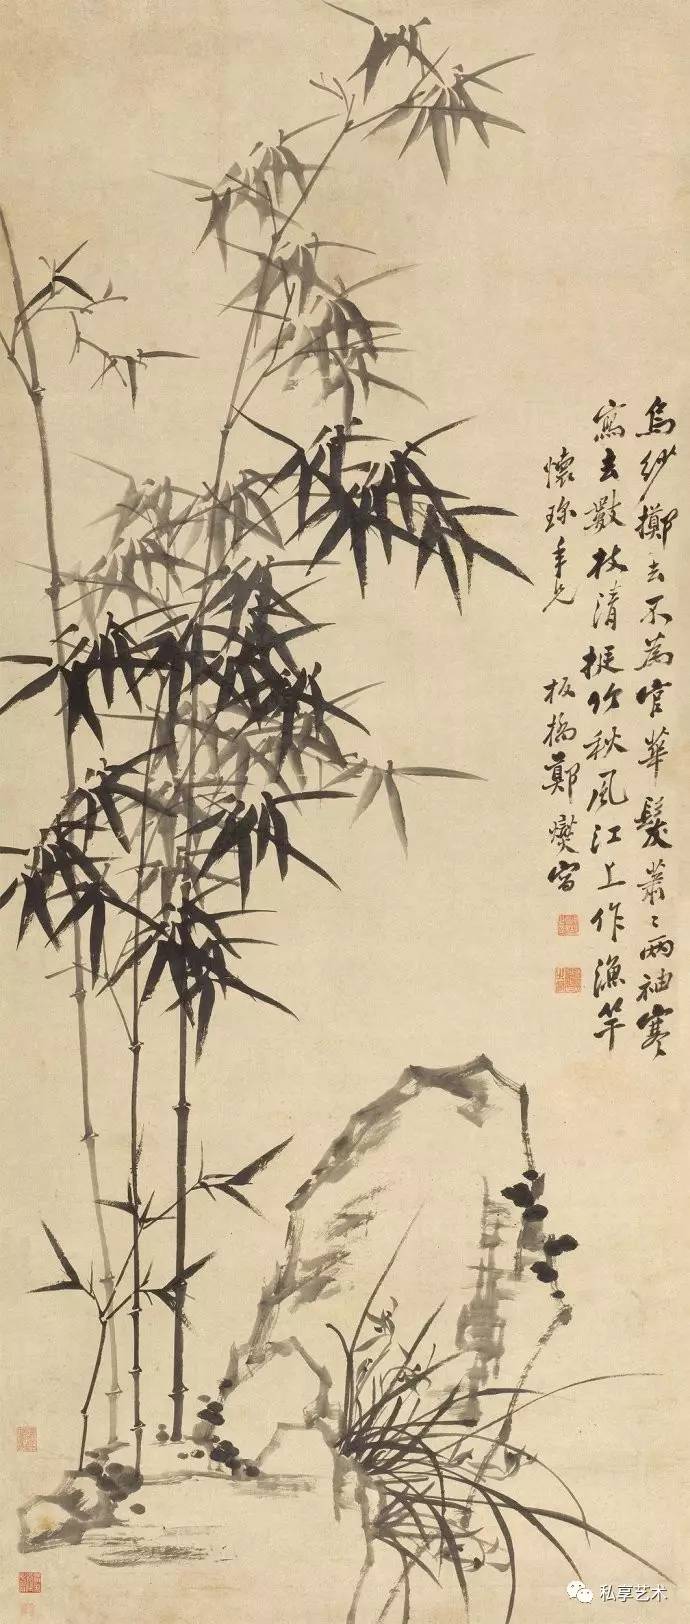 烏紗擲去不為官華髮蕭〻兩袖寒
寫去數枝清挺竹秋風江上作漁竿
懷珎年兄
板橋鄭燮寫
私享艺术